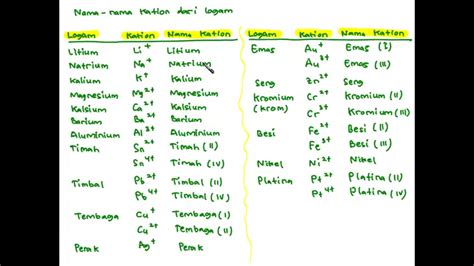 Nama-nama kation dari logam
Logam Kation Nama Kation
Litium Li⁺ Litium
Natrium Na⁺ Natrium
Kalium K⁺ Kalium
Magnesium Mg²⁺ Magnesium
Kalsium Ca²⁺ Kalsium
Barium Ba²⁺ Barium
Aluminium Al³⁺ Aluminium
Timah Sn²⁺ Timah (II)
Sn⁴⁺ Timah (IV)
Timbal Pb²⁺ Timbal (II)
Pb⁴⁺ Timbal (IV)
Tembaga Cu⁺ Tembaga (I)
Cu²⁺ Tembaga (II)
Perak Ag⁺ Perak
Logam Kation Nama Kation
Emas Au⁺ Emas (I)
Au³⁺ Emas (III)
Seng Zn²⁺ Seng
Kromium Cr²⁺ Kromium (II)
(krom) Cr³⁺ Kromium (III)
Besi Fe²⁺ Besi (II)
Fe³⁺ Besi (III)
Nikel Ni²⁺ Nikel
Platina Pt²⁺ Platina (II)
Pt⁴⁺ Platina (IV)